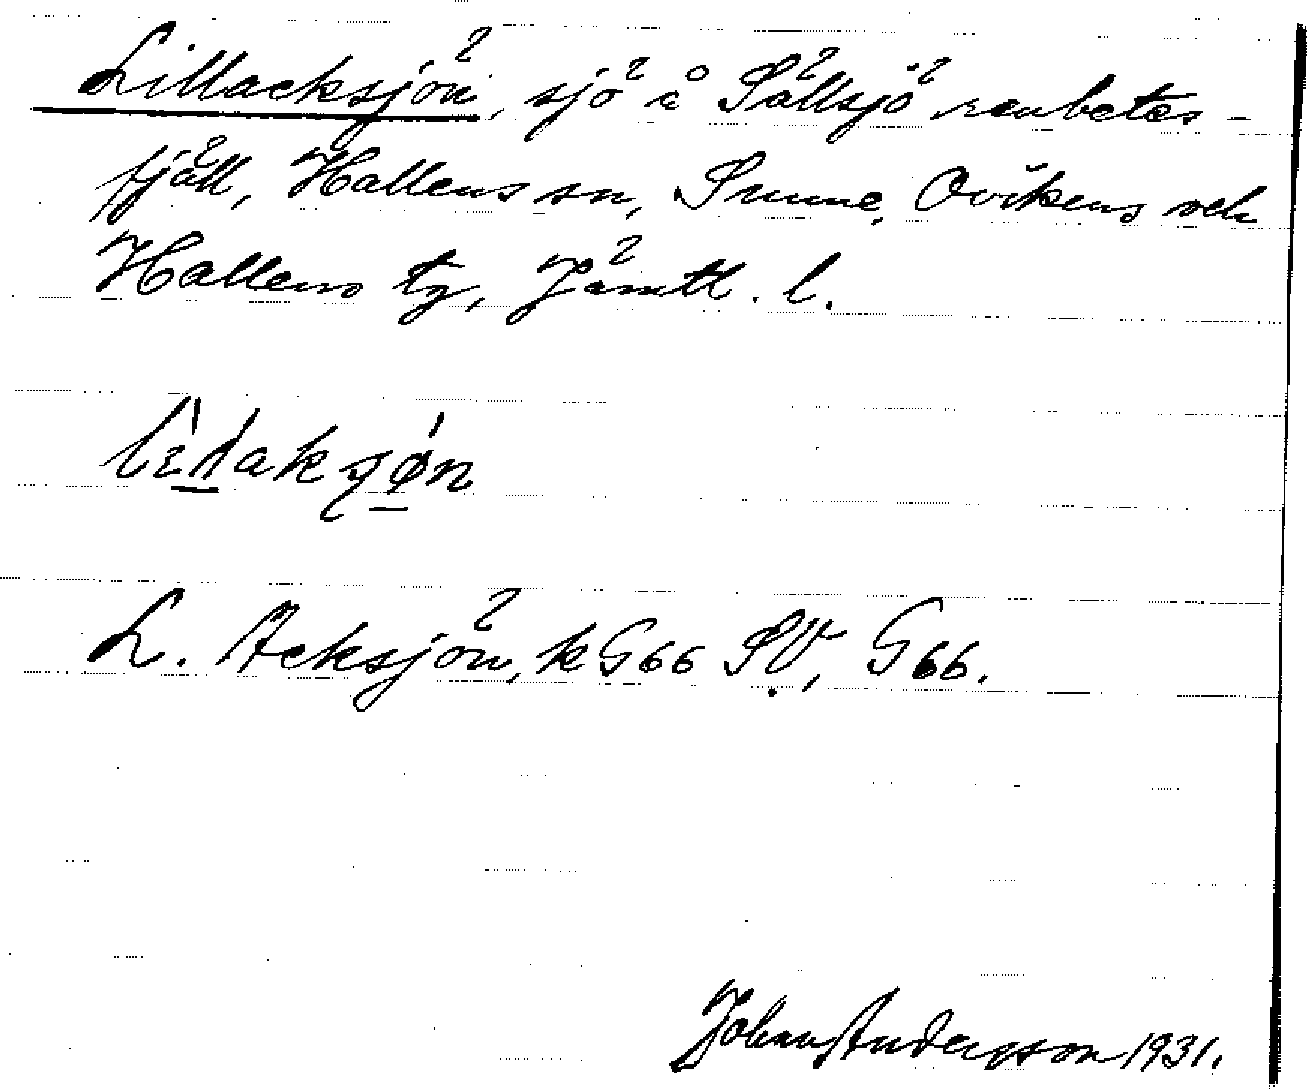 Lillacksjön, sjö å Sällsjö renbetes-
fjäll, Hallens sn, Sunne, Ovikens och
Hallens tg, Jämtl. l.
L. Acksjön, k G66 SV, G66.
Johan Andersson 1931.